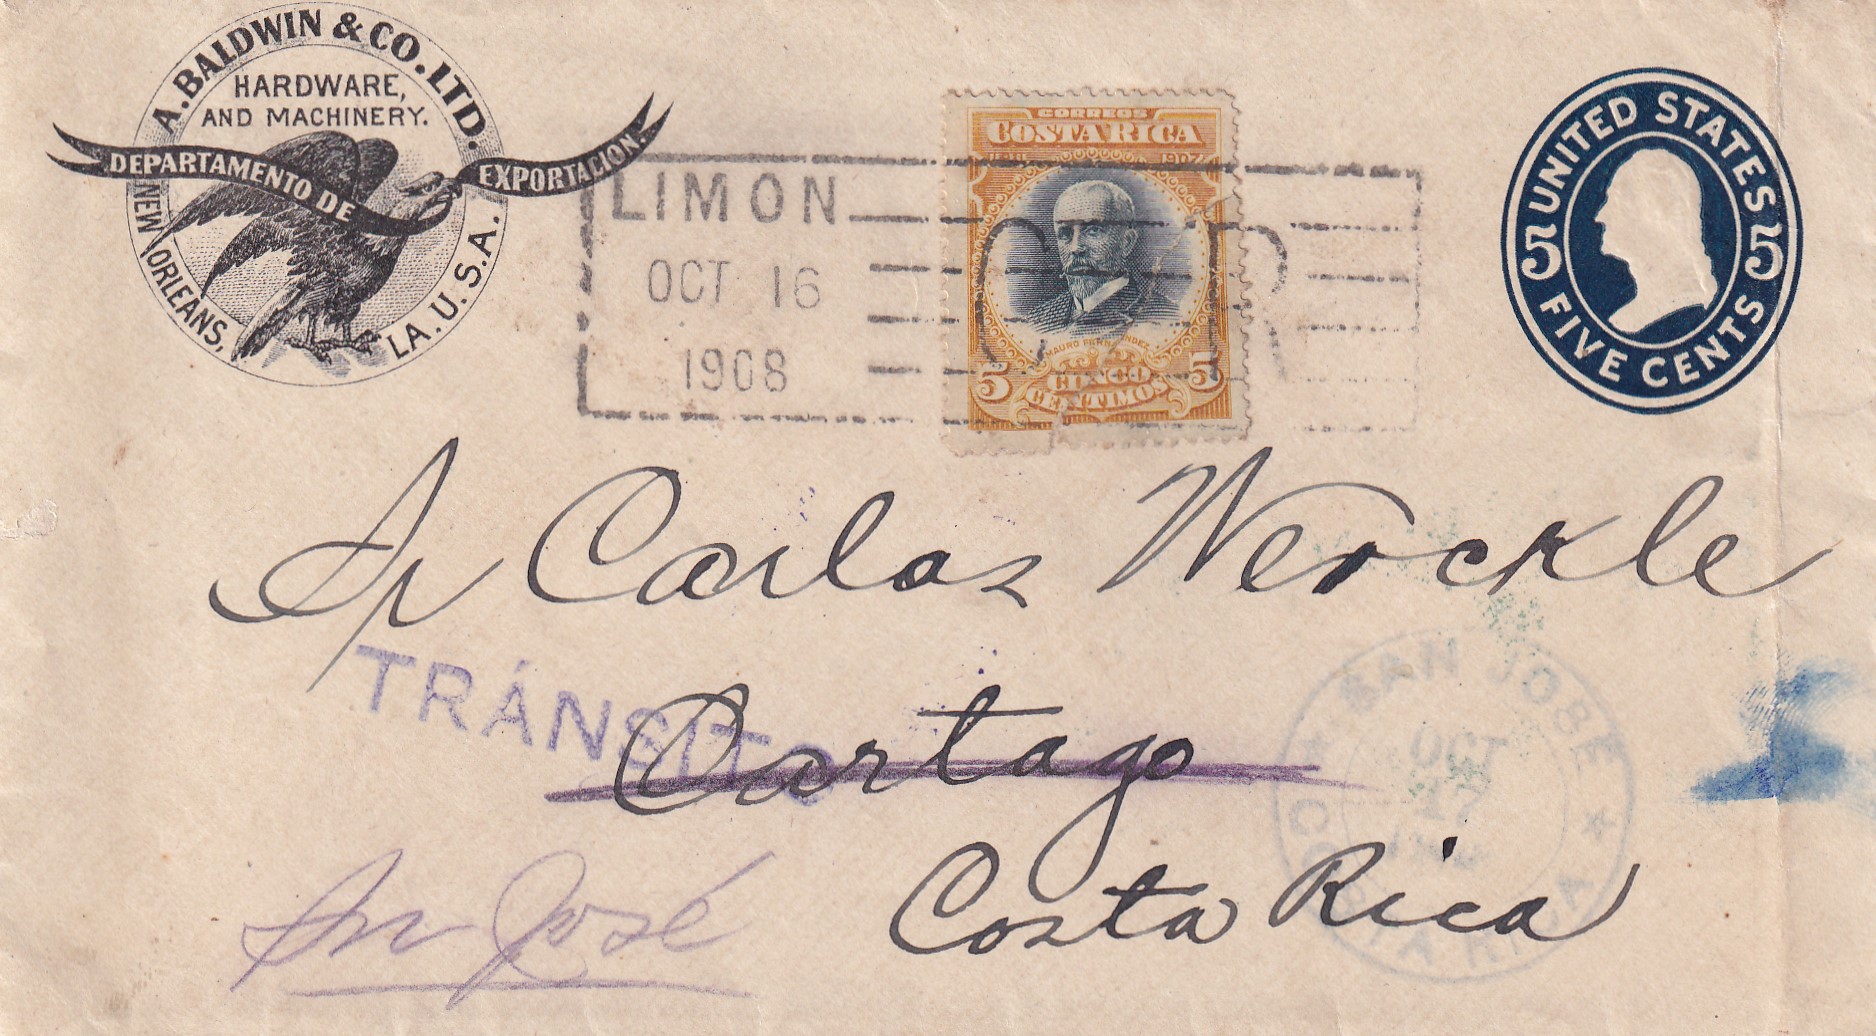 A. BALDWIN & CO. LTD.
HARDWARE,
AND MACHINERY.
DEPARTAMENTO DE EXPORTACION.
NEW ORLEANS, LA. U.S.A.
LIMON
OCT 16
1908
C R
CORREOS
COSTA RICA
1907
MAURO FERNANDEZ
5 CINCO 5
CENTIMOS
UNITED STATES
5 5
FIVE CENTS
Sr Carlos Werckle
TRÁNSITO
Cartago
San José
Costa Rica
SAN JOSE
OCT
17
COSTA RICA